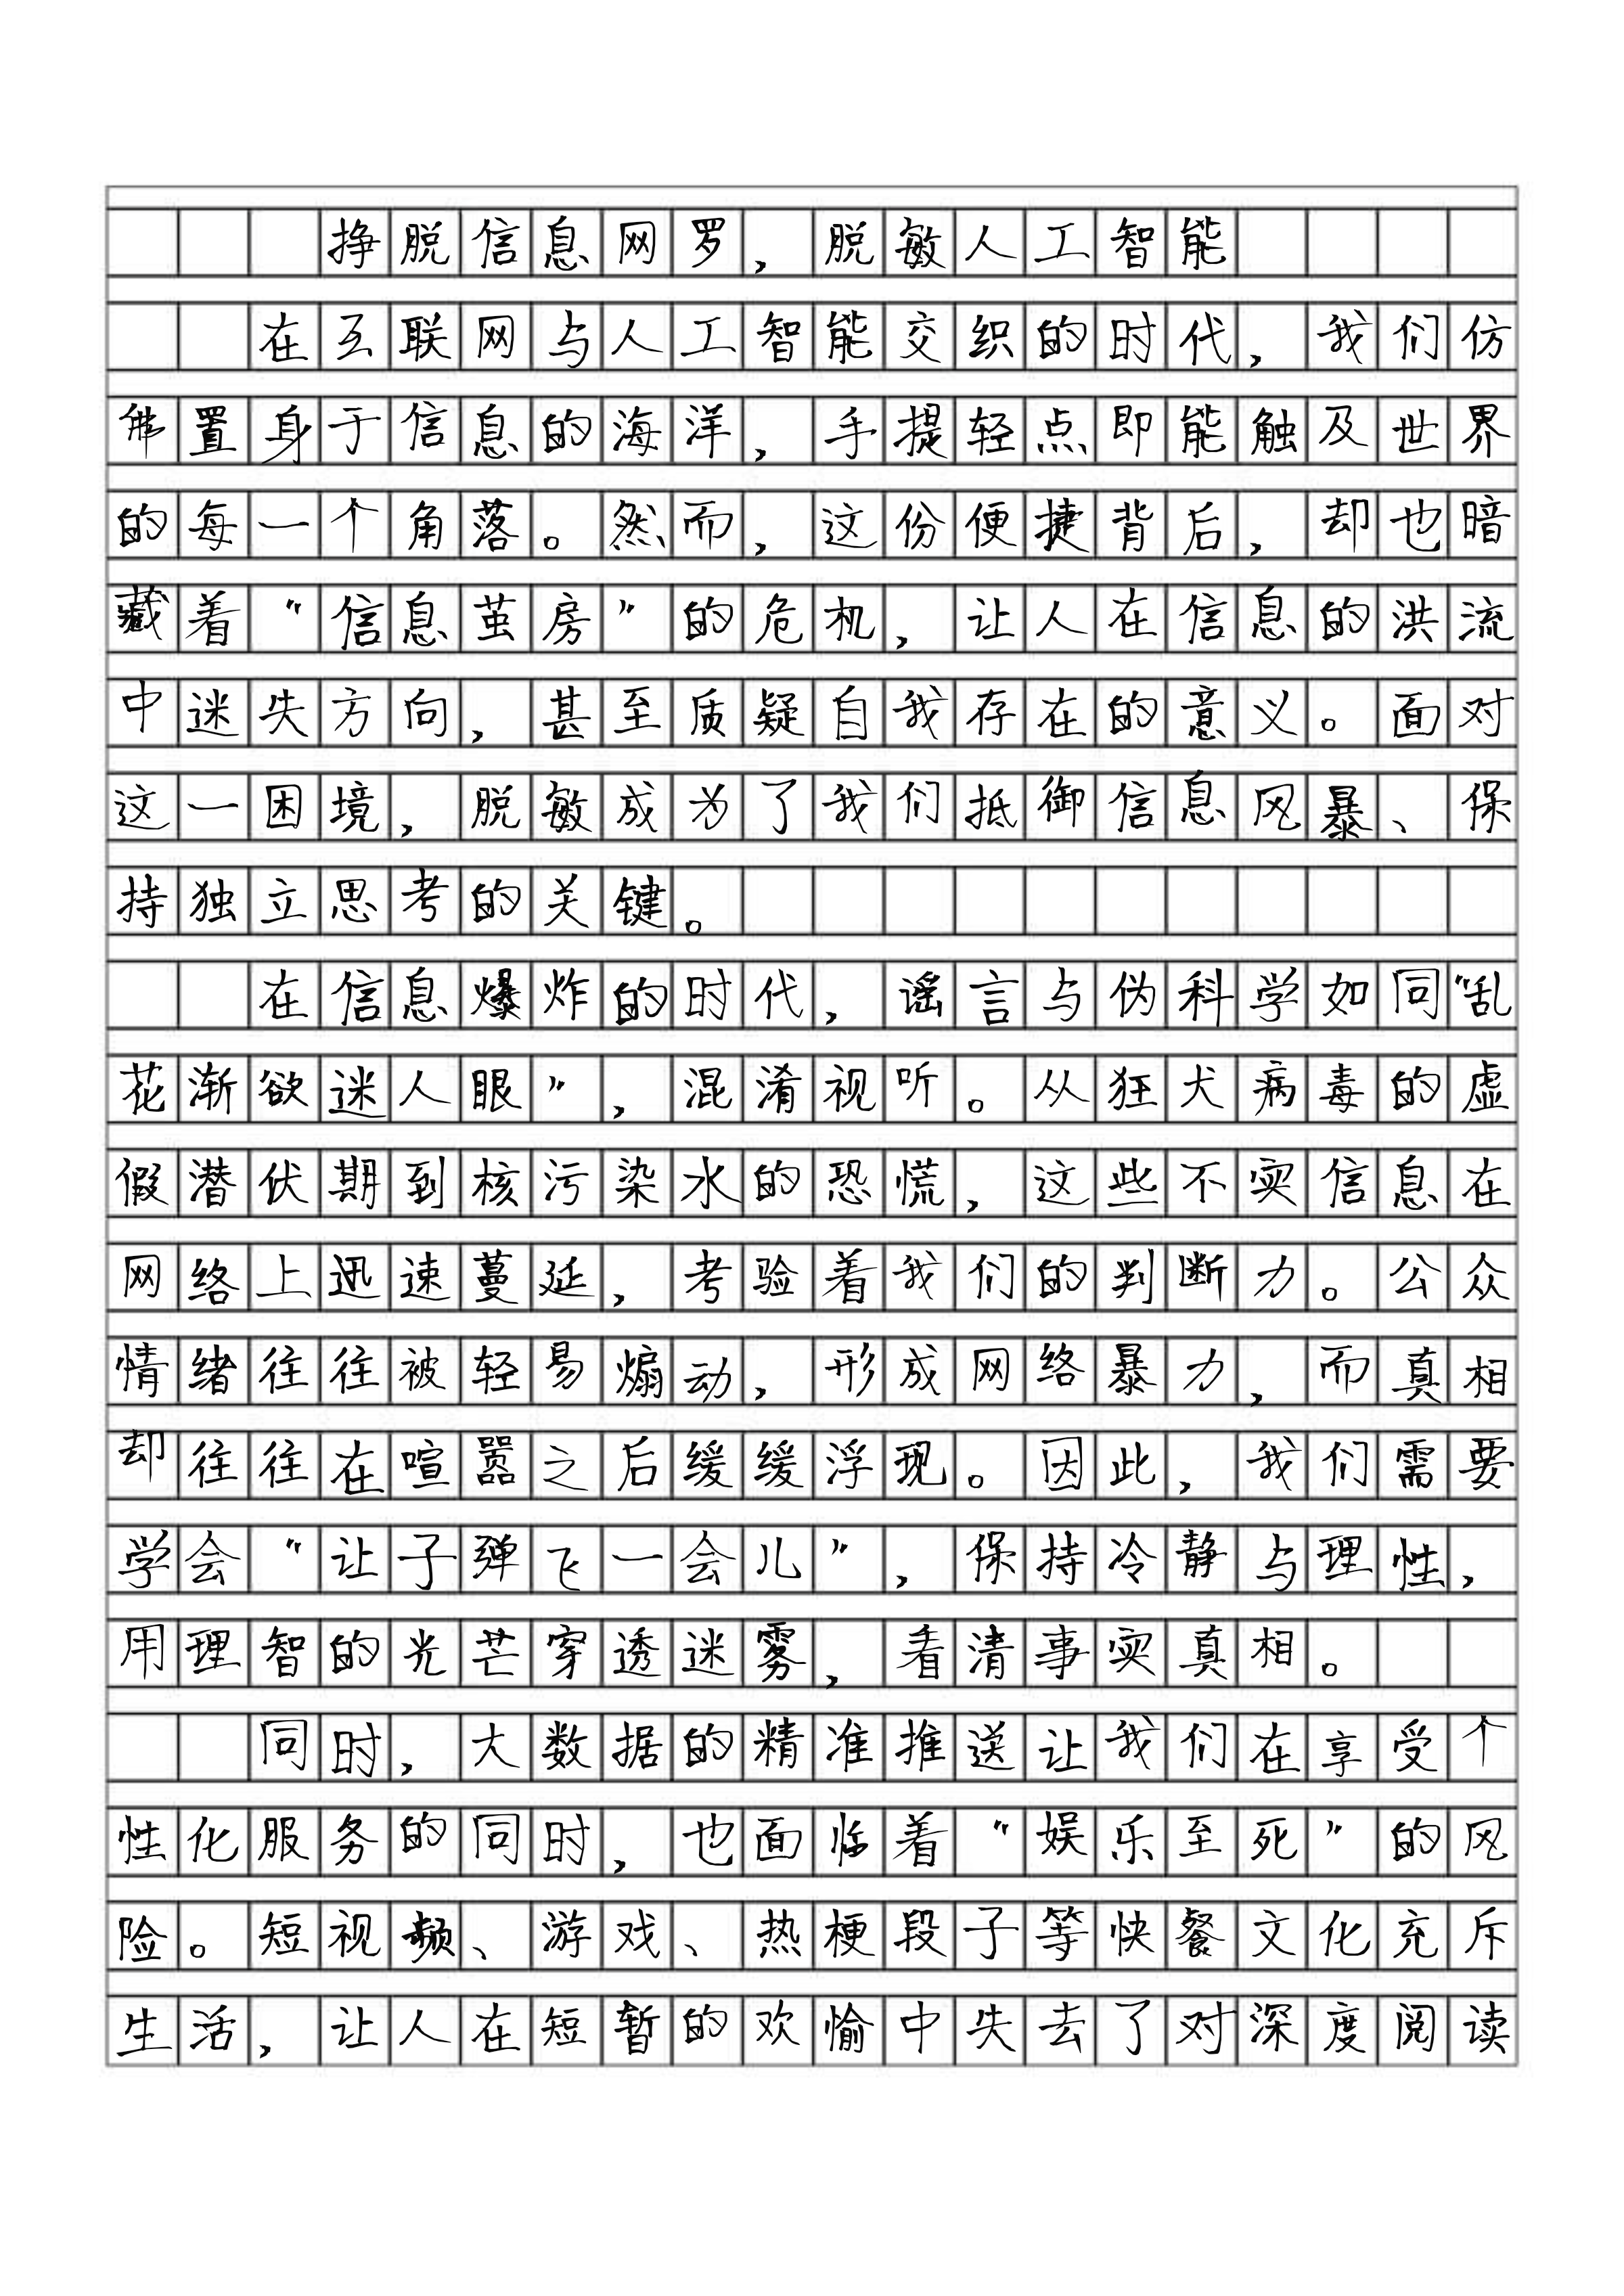 挣脱信息网罗，脱敏人工智能
在互联网与人工智能交织的时代，我们仿
佛置身于信息的海洋，手提轻点即能触及世界
的每一个角落。然而，这份便捷背后，却也暗
藏着“信息茧房”的危机，让人在信息的洪流
中迷失方向，甚至质疑自我存在的意义。面对
这一困境，脱敏成为了我们抵御信息风暴、保
持独立思考的关键。
在信息爆炸的时代，谣言与伪科学如同“乱
花渐欲迷人眼”，混淆视听。从狂犬病毒的虚
假潜伏期到核污染水的恐慌，这些不实信息在
网络上迅速蔓延，考验着我们的判断力。公众
情绪往往被轻易煽动，形成网络暴力，而真相
却往往在喧嚣之后缓缓浮现。因此，我们需要
学会“让子弹飞一会儿”，保持冷静与理性，
用理智的光芒穿透迷雾，看清事实真相。
同时，大数据的精准推送让我们在享受个
性化服务的同时，也面临着“娱乐至死”的风
险。短视频、游戏、热梗段子等快餐文化充斥
生活，让人在短暂的欢愉中失去了对深度阅读